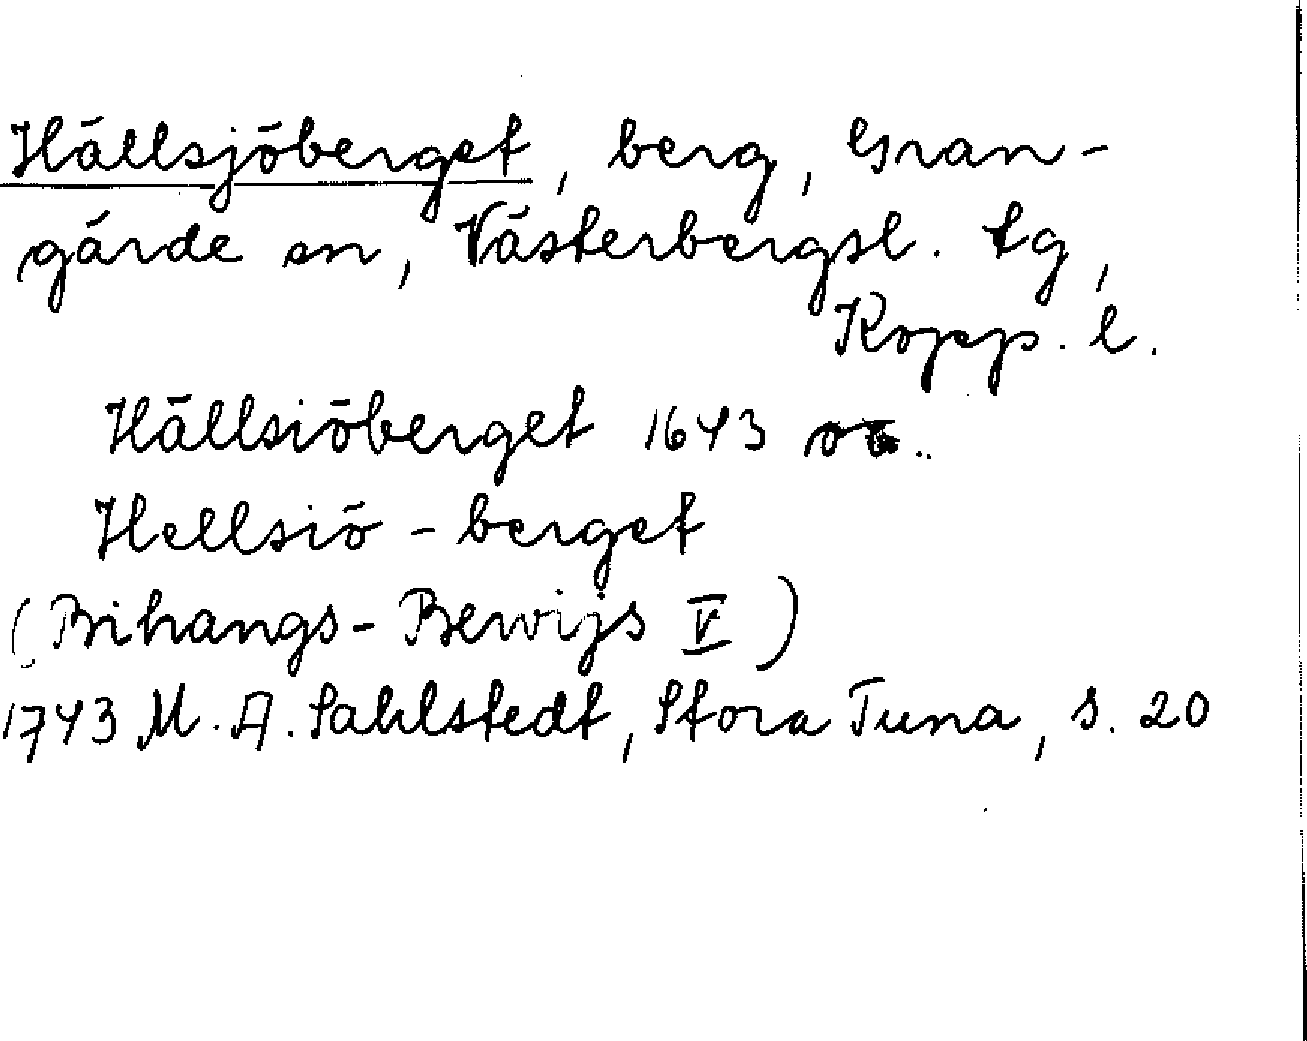 Hällsjöberget, berg, Gran-
gärde sn, Västerbergsl. tg,
Kopp. l.
Hällsiöberget 1643
Hellsiö - berget
(Bihangs - Bewijs V)
1743 M. A. Sahlstedt, Stora Tuna, s. 20